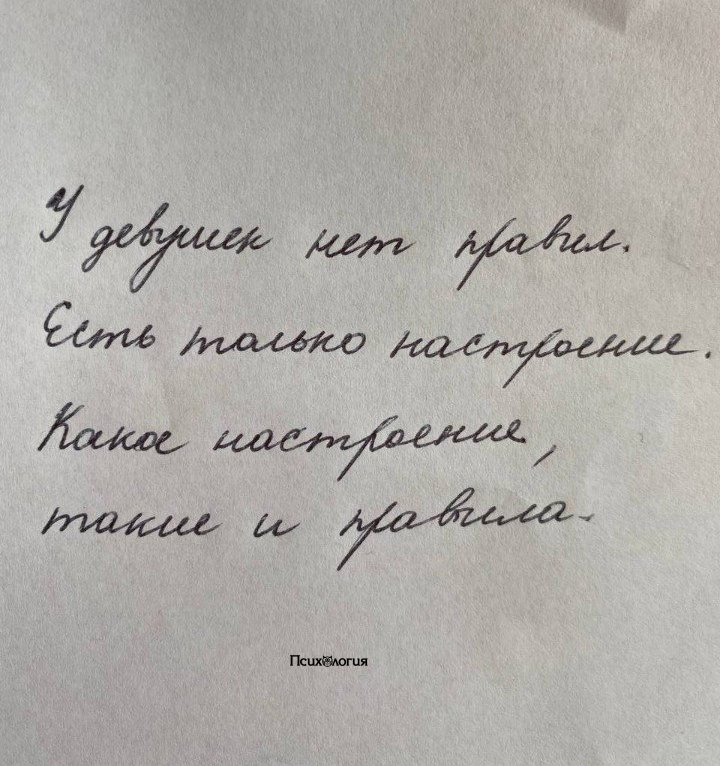 У девушек нет правил.
Есть только настроение.
Какое настроение,
такие и правила.
Психология